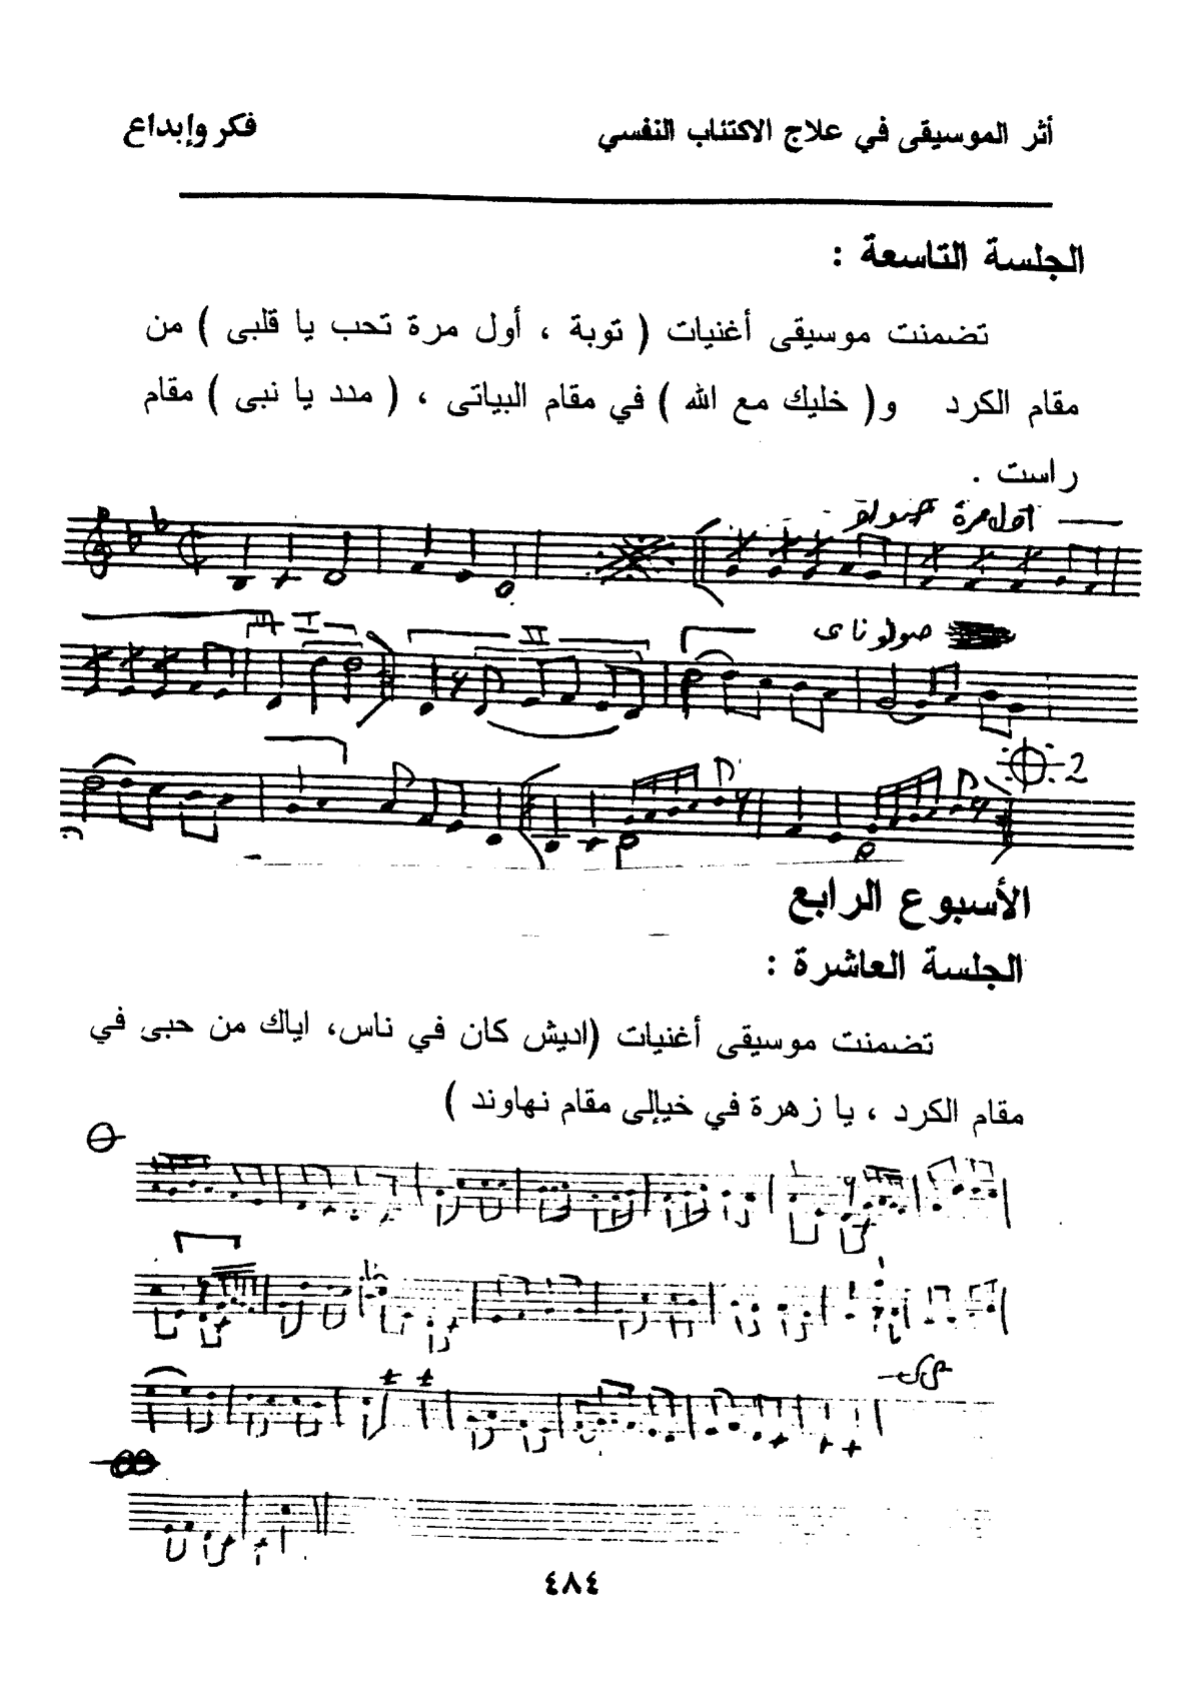 أثر الموسيقى في علاج الاكتئاب النفسي فكر وإبداع
الجلسة التاسعة :
تضمنت موسيقى أغنيات ( توبة ، أول مرة تحب يا قلبى ) من
مقام الكرد و( خليك مع الله ) في مقام البياتى ، ( مدد يا نبى ) مقام
راست .
اول مرة صولو
I II
صولو ناى
2
الأسبوع الرابع
الجلسة العاشرة :
تضمنت موسيقى أغنيات (اديش كان في ناس، اياك من حبى في
مقام الكرد ، يا زهرة في خيإلى مقام نهاوند )
٤٨٤